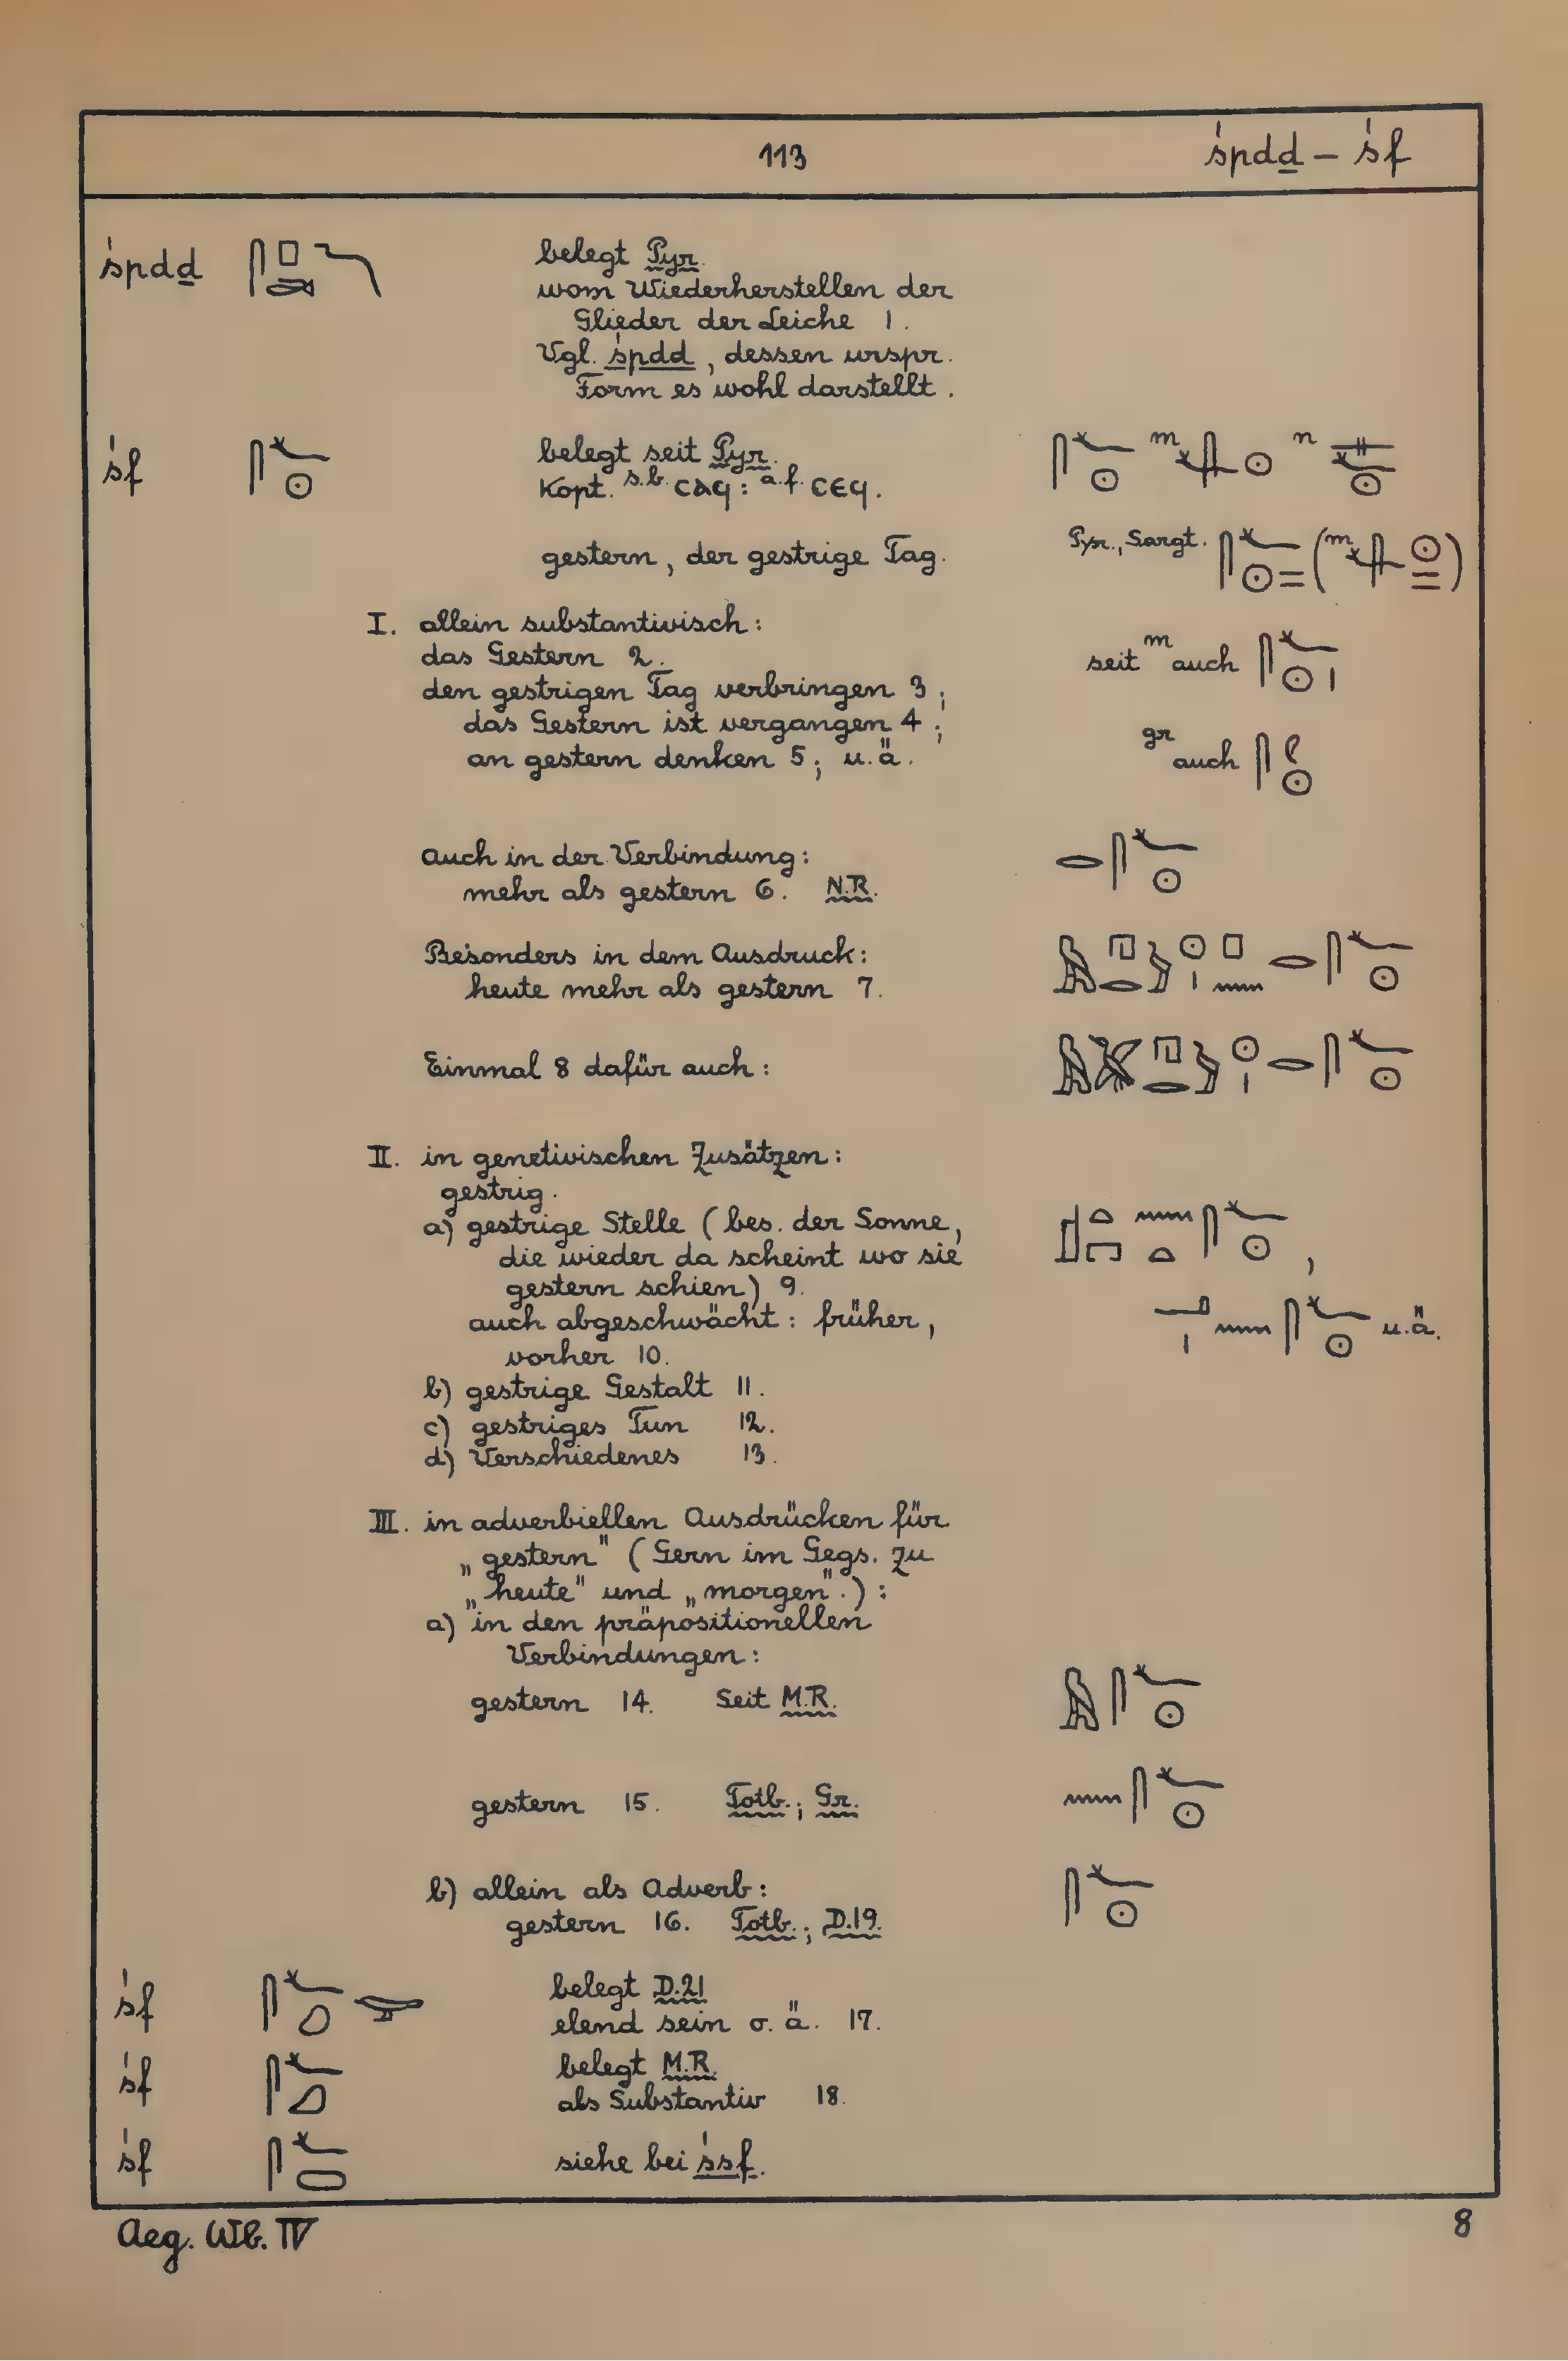 113
śpdḏ – śf
śpdḏ
belegt Pyr.
vom Wiederherstellen der
Glieder der Leiche 1.
Vgl. śpdd, dessen urspr.
Form es wohl darstellt.
śf
belegt seit Pyr.
Kopt. s.b. ⲥⲁϥ: a.f. ⲥⲉϥ.
gestern, der gestrige Tag.
Pyr., Sargt.
I. allein substantivisch:
das Gestern 2.
den gestrigen Tag verbringen 3;
das Gestern ist vergangen 4;
an gestern denken 5; u.ä.
seit m auch
gr auch
Auch in der Verbindung:
mehr als gestern 6. N.R.
Besonders in dem Ausdruck:
heute mehr als gestern 7.
Einmal 8 dafür auch:
II. in genetivischen Zusätzen:
gestrig.
a) gestrige Stelle (bes. der Sonne,
die wieder da scheint wo sie
gestern schien) 9.
auch abgeschwächt: früher,
vorher 10.
u.ä.
b) gestrige Gestalt 11.
c) gestriges Tun 12.
d) Verschiedenes 13.
III. in adverbiellen Ausdrücken für
„gestern" (Gern im Gegs. zu
„heute" und „morgen".):
a) in den präpositionellen
Verbindungen:
gestern 14. Seit M.R.
gestern 15. Totb.; Gr.
b) allein als Adverb:
gestern 16. Totb.; D.19.
śf
belegt D.21
elend sein o. ä. 17.
śf
belegt M.R.
als Substantiv 18.
śf
siehe bei śsf.
Aeg. Wb. IV
8